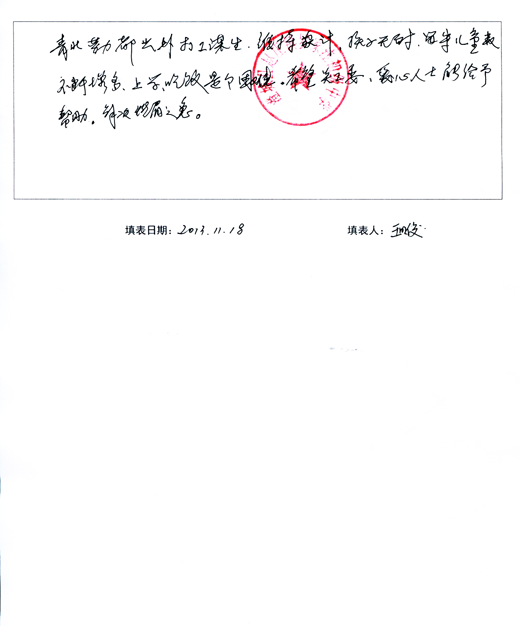 青壮劳力都出外打工谋生,维持家计,孩子无人管,留守儿童数
不断增多,上学吃饭是个困难。希望关工委、爱心人士能给予
帮助,解决燃眉之急。
填表日期:2013.11.18
填表人: